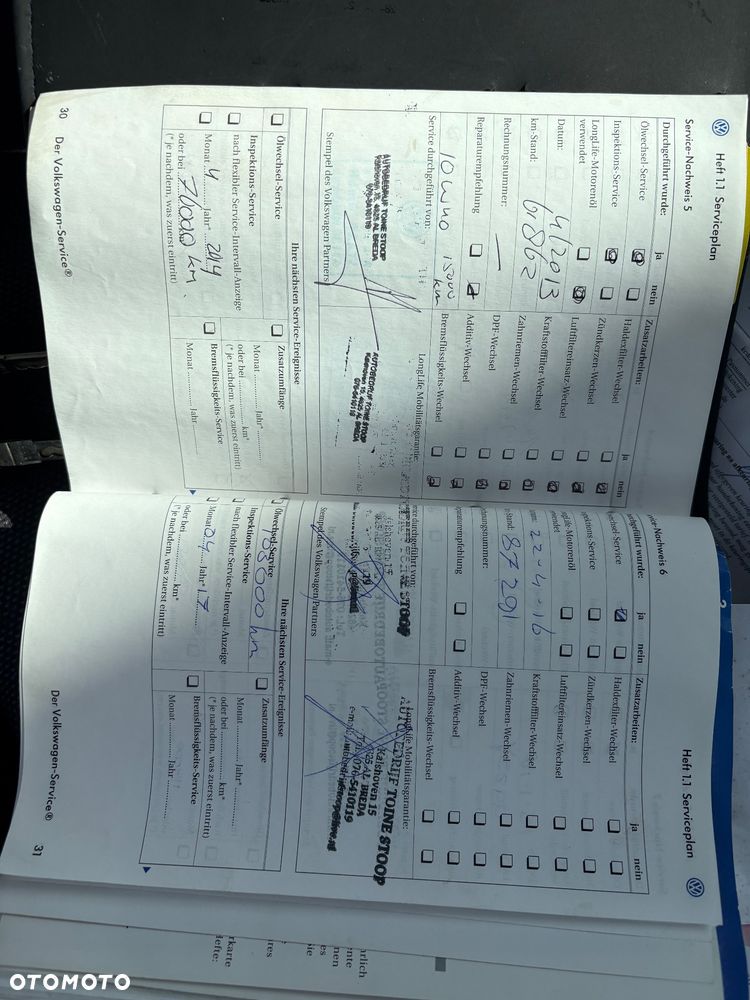 Heft 1.1 Serviceplan
Service-Nachweis 5
Durchgeführt wurde:
ja
nein
Ölwechsel-Service
Inspektions-Service
LongLife-Motorenöl
verwendet
Datum:
4/2013
km-Stand:
61862
Rechnungsnummer:
Reparaturempfehlung
Service durchgeführt von:
10W40
15000
km
AUTOBEDRIJF TOINE STOOP
076-5410119
Stempel des Volkswagen Partners
Zusatzarbeiten:
ja
nein
Haldexfilter-Wechsel
Zündkerzen-Wechsel
Luftfiltereinsatz-Wechsel
Kraftstofffilter-Wechsel
Zahnriemen-Wechsel
DPF-Wechsel
Additiv-Wechsel
Bremsflüssigkeits-Wechsel
LongLife Mobilitätsgarantie:
AUTOBEDRIJF TOINE STOOP
076-5410119
Ihre nächsten Service-Ereignisse
Ölwechsel-Service
Inspektions-Service
nach flexibler Service-Intervall-Anzeige
Monat 4 Jahr* 2014
oder bei 74000 km
(* je nachdem, was zuerst eintritt)
Zusatzumfänge
Monat Jahr*
oder bei km*
(* je nachdem, was zuerst eintritt)
Bremsflüssigkeits-Service
Monat Jahr
30 Der Volkswagen-Service®
Heft 1.1 Serviceplan
vice-Nachweis 6
chgeführt wurde:
ja
nein
echsel-Service
ektions-Service
gLife-Motorenöl
wendet
22-4-16
Stand:
87291
hnungsnummer:
araturempfehlung
ice durchgeführt von:
TOINE STOOP
Stempel des Volkswagen Partners
Zusatzarbeiten:
ja
nein
Haldexfilter-Wechsel
Zündkerzen-Wechsel
Luftfiltereinsatz-Wechsel
Kraftstofffilter-Wechsel
Zahnriemen-Wechsel
DPF-Wechsel
Additiv-Wechsel
Bremsflüssigkeits-Wechsel
LongLife Mobilitätsgarantie:
AUTOBEDRIJF TOINE STOOP
Kalshoven 15
4825 AL BREDA
Tel. 076-5410119
Ihre nächsten Service-Ereignisse
Ölwechsel-Service
Inspektions-Service
nach flexibler Service-Intervall-Anzeige
Monat 04 Jahr* 17
oder bei km*
(* je nachdem, was zuerst eintritt)
Zusatzumfänge
Monat Jahr*
oder bei km*
(* je nachdem, was zuerst eintritt)
Bremsflüssigkeits-Service
Monat Jahr
Der Volkswagen-Service®
31
OTOMOTO